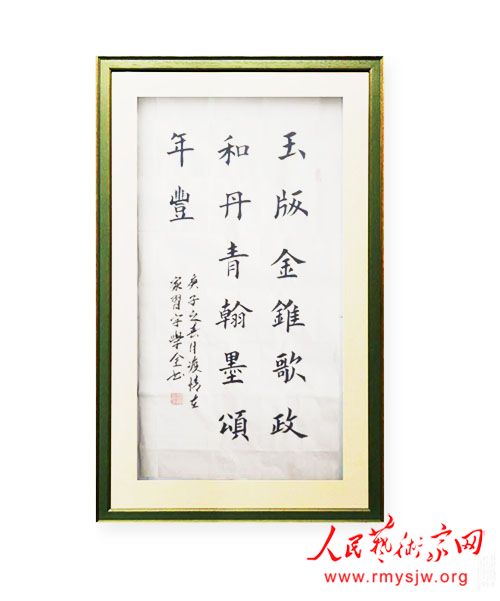 玉版金錐歌政
和丹青翰墨頌
年豐
庚子之春月疫情在
家習字學全书
人民藝術家网
www.rmysjw.org